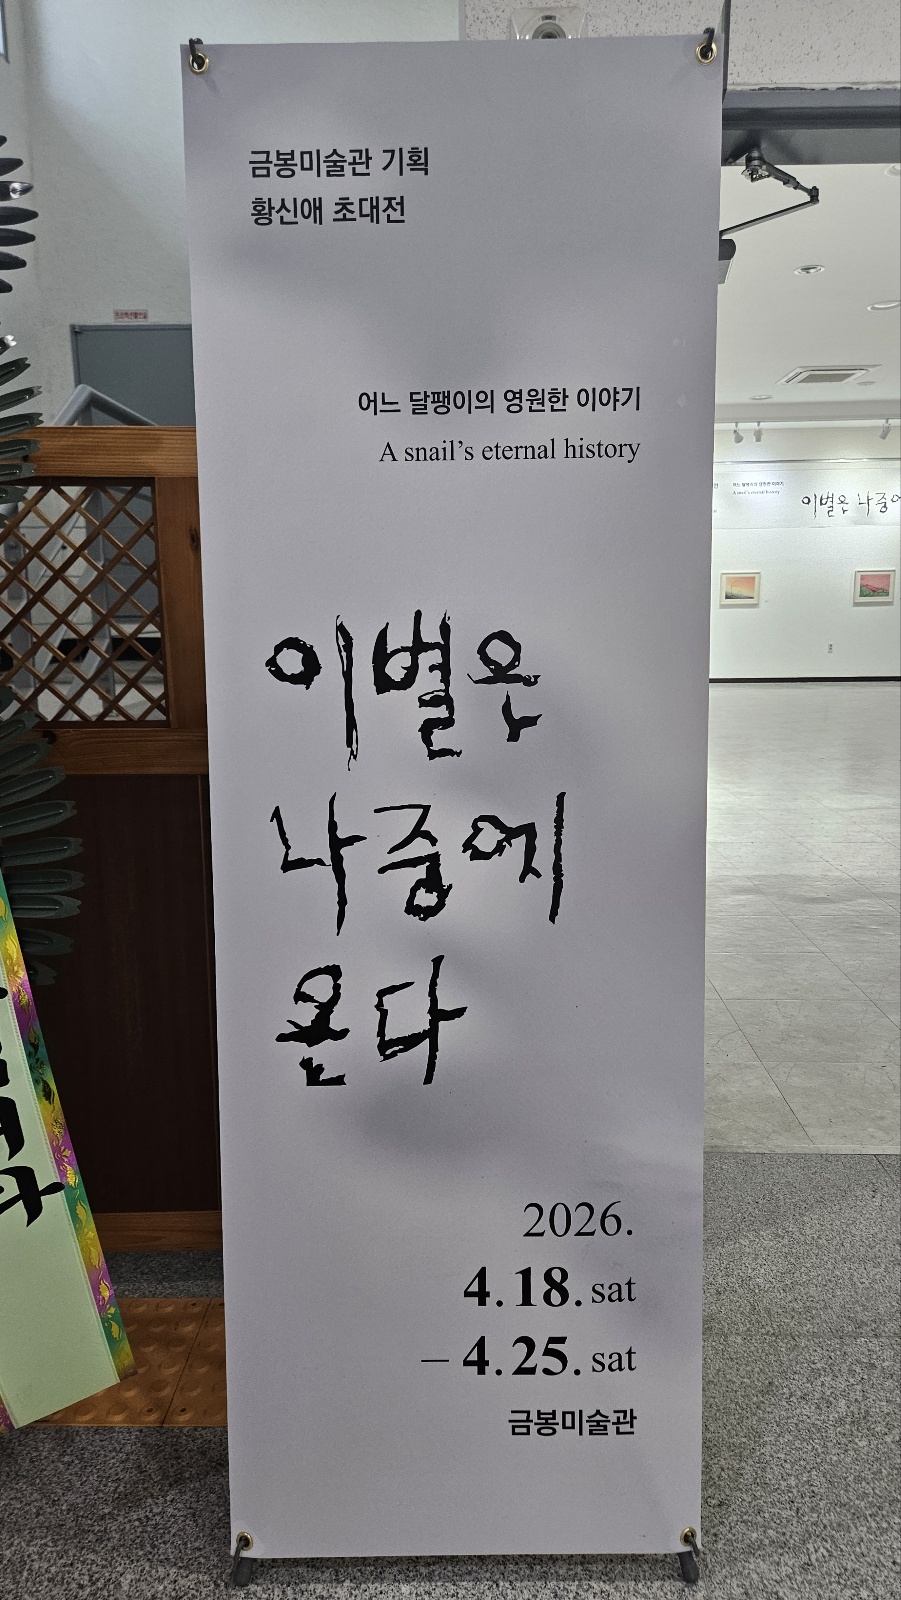 금봉미술관 기획
황신애 초대전
어느 달팽이의 영원한 이야기
A snail's eternal history
이별은
나중에
온다
2026.
4.18. sat
– 4.25. sat
금봉미술관
어느 달팽이의 영원한 이야기
A snail's eternal history
이별은 나중에